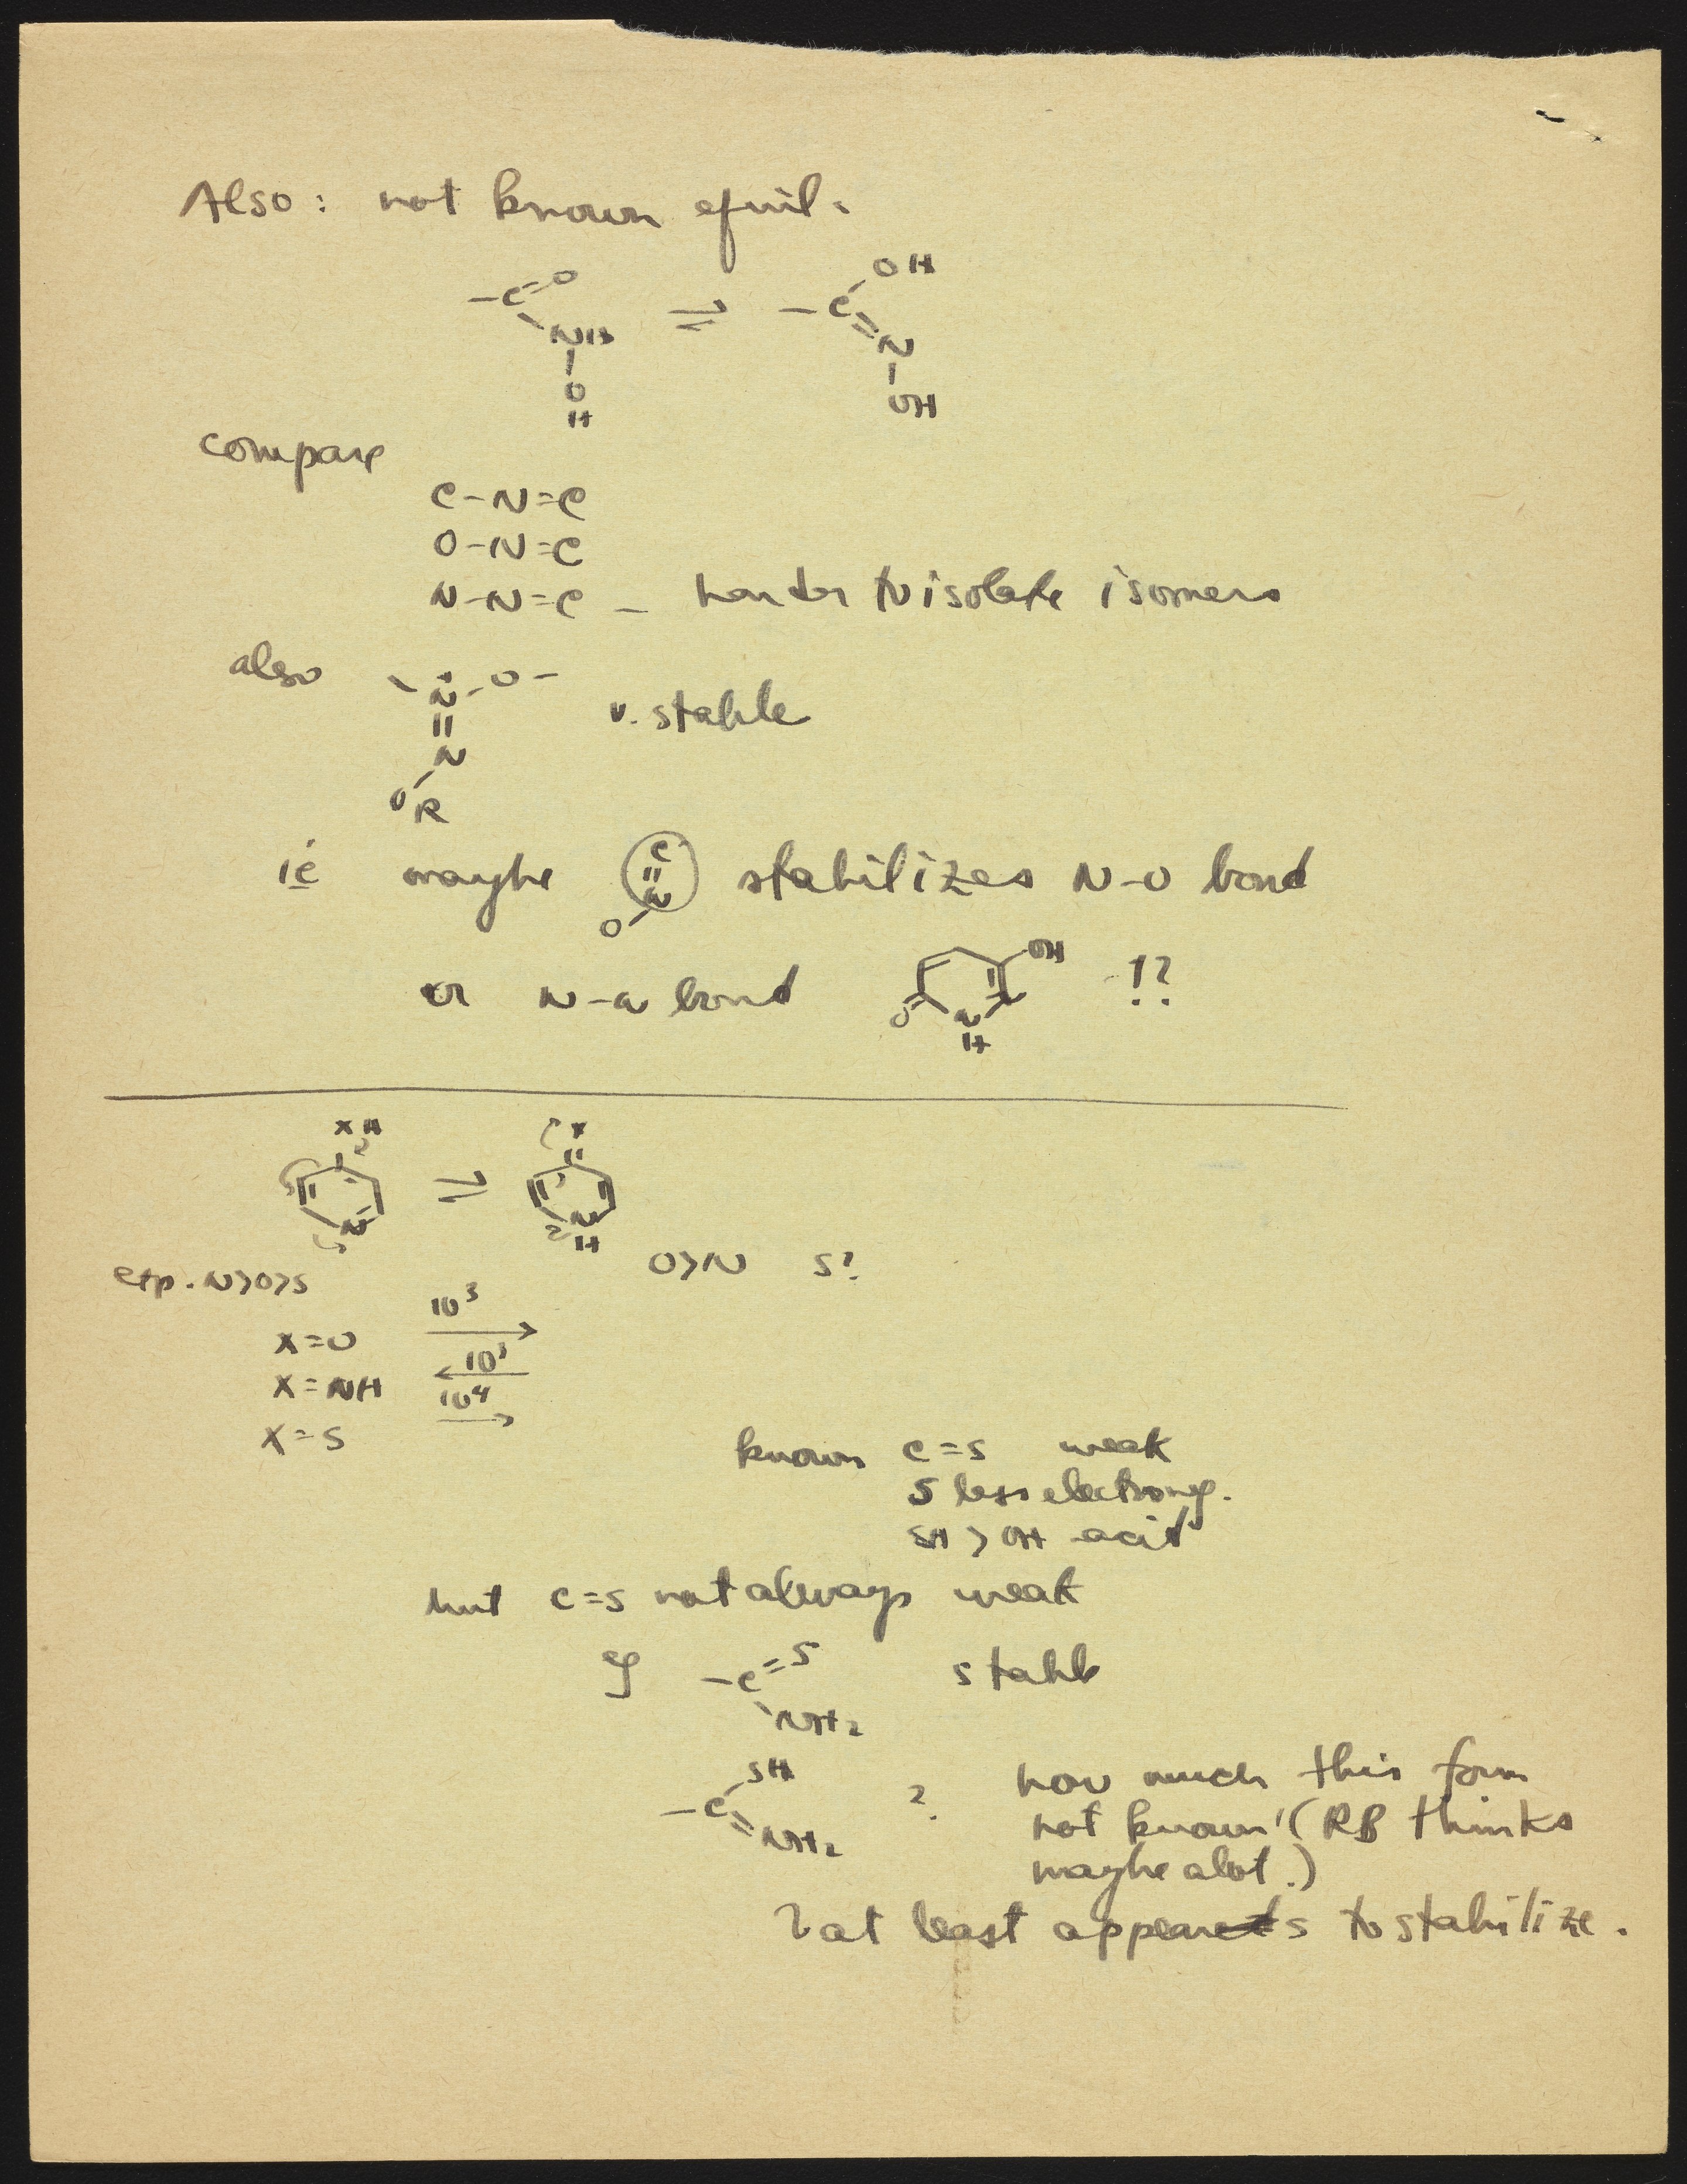 Also: not known equil.
-C=O ⇌ -C-OH
NH N
O OH
H
compare
C-N=C
O-N=C
N-N=C - harder to isolate isomers
also -N-O- v. stable
N
OR
ie maybe C=N-O stabilizes N-O bond
or N-N bond !?
OH
O N
N
H
XH ⇌ X
N N
H
O>N S?
exp. N>O>S
X=O 10³ →
X=NH 10³ ←
X=S 10⁴ →
known C=S weak
S less electroneg.
SH > OH acid
but C=S not always weak
eg -C=S stable
NH₂
-C-SH ? how much this form
=NH₂ not known (RB thinks
maybe alot.)
? at least appears to stabilize.